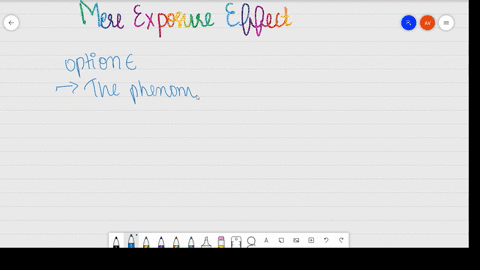 Mere Exposure Effect
option E
→ The phenom